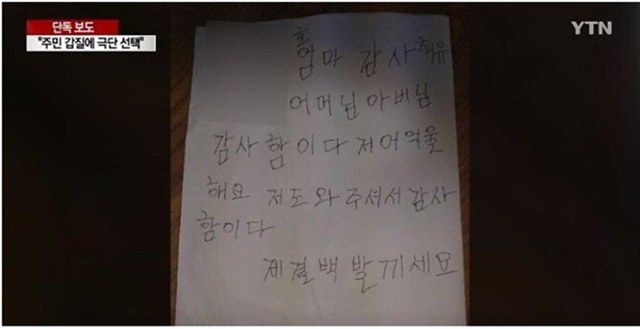 단독 보도
"주민 갑질에 극단 선택"
YTN
엄마 감사해유
어머님 아버님
감사 함이다 저어억울
해요 저도와주셔서 감사
함이다
제결백 발끼세요